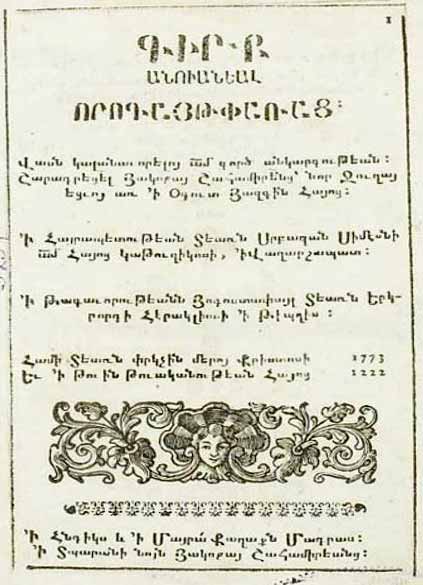 1
ԳԻՐՔ
ԱՆՈՒԱՆԵԱԼ
ՈՐՈԳԱՅԹՓԱՌԱՑ:
Վասն կալանաւորելոյ ամ գործ անկարգութեան:
Շարադրեցել Յակոբայ Շահամիրենց՝ նոր Ջուղայ
եցւոյ առ ՚ի Օգուտ Յազգին Հայոց:
՚Ի Հայրապետութեան Տեառն Սրբազան Սիմէօնի
ամ Հայոց կաթուղիկոսի, ՚իՎաղարշապատ:
՚Ի Թագաւորութեանն Յոգոստափառ Տեառն Երկ-
րորդի Հէրակլիոսի ՚ի Թիֆլիզ:
Համի Տեառն փրկչին մերոյ Քրիստոսի 1773
Եւ ՚ի Թուին Թուականութեան Հայոց 1222
՚Ի Հնդիկս և ՚ի Մայրա Քաղաքն Մադրաս:
՚Ի Տպարանի նոյն Յակոբայ Շահամիրենց: